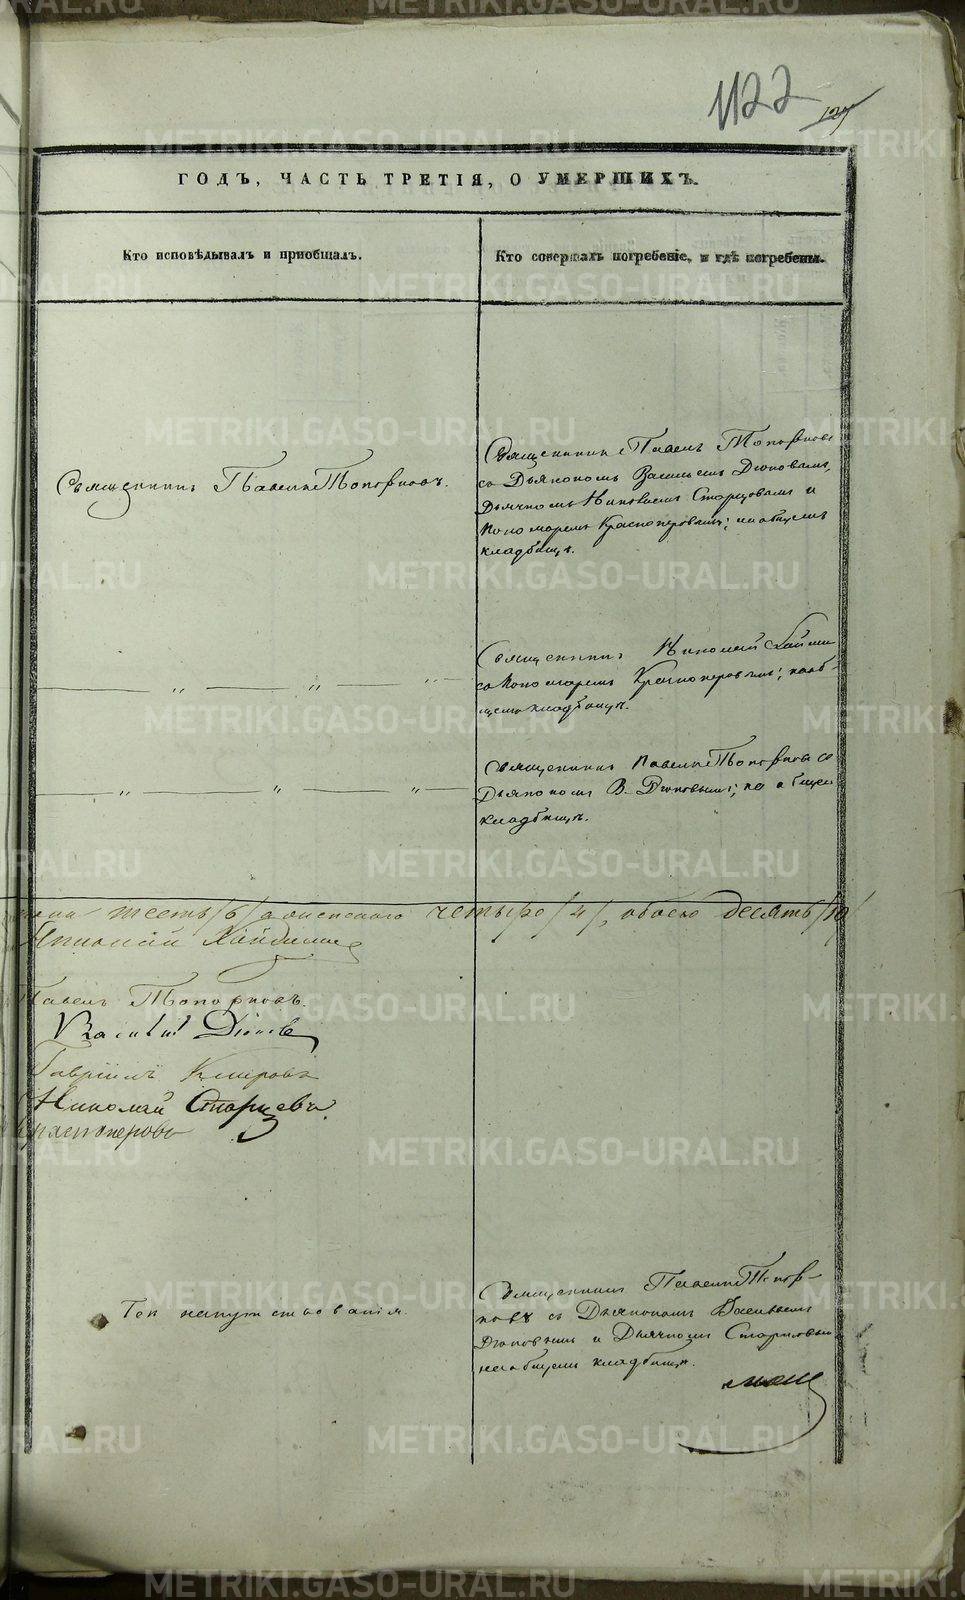 1122
127
ГОДЪ, ЧАСТЬ ТРЕТІЯ, О УМЕРШИХЪ.
Кто исповѣдывалъ и пріобщалъ.
Кто совершалъ погребеніе, и гдѣ погребены.
Священникъ Павелъ Топорковъ.
Священникъ Павелъ Топорковъ
съ Дьякономъ Васильемъ Дюковымъ,
Дьячкомъ Николаемъ Старцовымъ и
Пономаремъ Красноперовымъ; на общемъ
кладбищѣ.
— „ — „ — „ —
Священникъ Николай
съ Пономаремъ Красноперовымъ; на об-
щемъ кладбищѣ.
— „ — „ — „ —
Священникъ Павелъ Топорковъ со
Дьякономъ В. Дюковымъ; на общем
кладбищѣ.
шесть /6/ а женскаго четыре /4/, обоего десять /10/
Николай
Павелъ Топорковъ.
Василій Дюковъ
Гавріилъ
Николай Старцевъ.
Красноперовъ
Без напутствованія.
Священникъ Павелъ Топор-
ковъ съ Дьякономъ Васильемъ
Дюковымъ и Дьячкомъ Старцовым
на общемъ кладбищѣ.
METRIKI.GASO-URAL.RU